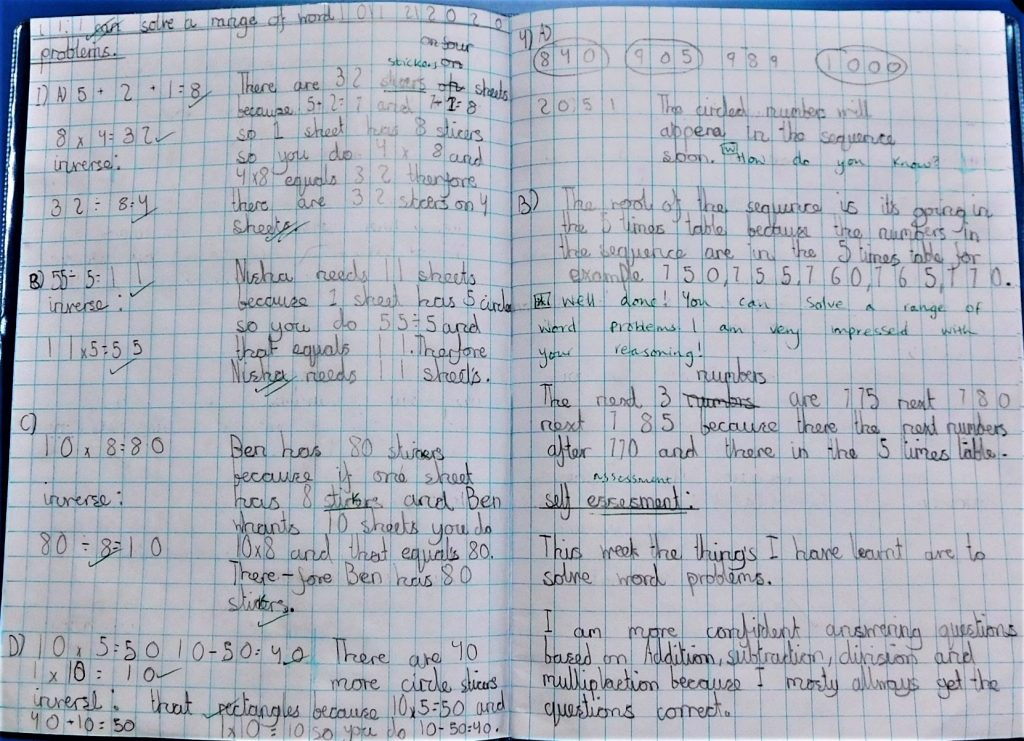 I can solve a range of word 10 12 2020
problems.
on four
stickers on
1) A) 5 + 2 + 1 = 8 There are 32 sticers on sheets
because 5+2=7 and 7+1=8
8 x 4 = 32 so 1 sheet has 8 sticers
inverse: so you do 4 x 8 and
4x8 equals 32 therfore
32 ÷ 8=4 there are 32 sticers on 4
sheets.
B) 55÷5=11 Nisha needs 11 sheets
inverse: because 1 sheet has 5 circle
so you do 55÷5 and
11x5=55 that equals 11. Therfore
Nisha needs 11 sheets.
C)
10 x 8=80 Ben has 80 stickers
because if one sheet
inverse: has 8 stickers and Ben
whants 10 sheets you do
80 ÷ 8=10 10x8 and that equals 80.
There-fore Ben has 80
stickers.
D) 10 x 5=50 10-50=40 There are 40
1 x 10 = 10 more circle sticers
inversl: that rectangles because 10x5=50 and
40+10=50 1x10=10 so you do 10-50=40.
4) A)
840 905 989 1000
2051 The circled number will
appear in the sequence
soon. W How do you know?
B) The rool of the sequence is its going in
the 5 times table because the numbers in
the sequence are in the 5 times table for
example 750, 755, 760, 765, 770.
Well done! You can solve a range of
word problems! I am very impressed with
your reasoning!
numbers
The next 3 numbers are 775 next 780
next 785 because there the next numbers
after 770 and there in the 5 times table.
assessment
self essesment:
This week the thing's I have learnt are to
solve word problems.
I am more confident answering questions
based on Addition, subtraction, division and
multiplaction because I mosty allways get the
questions correct.